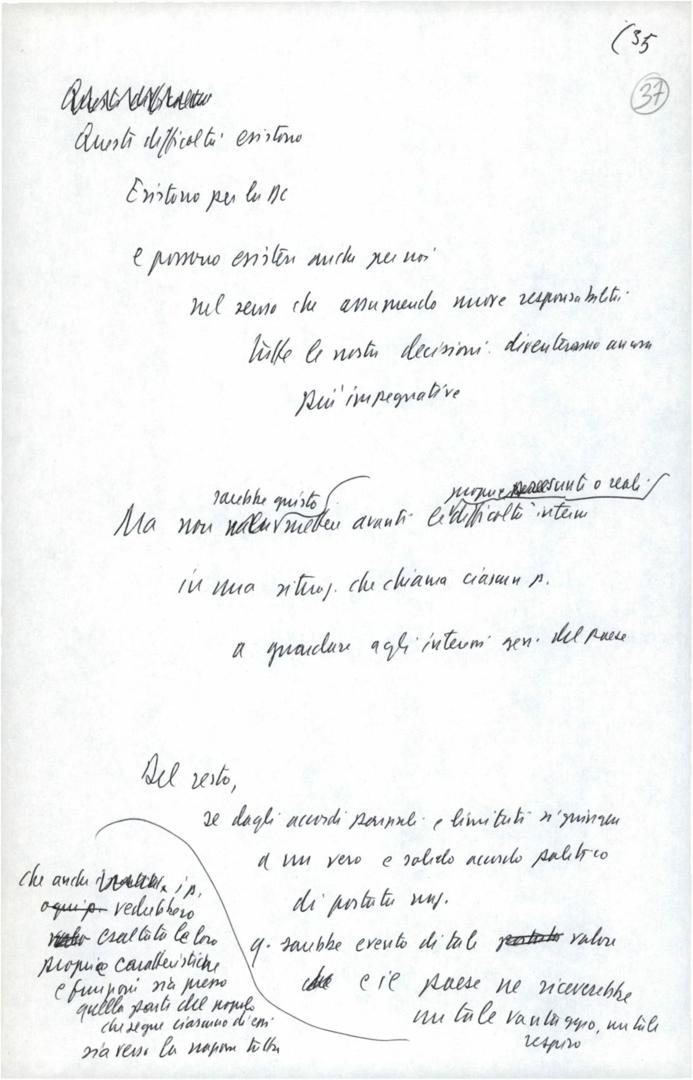 (35
37
Queste difficoltà
Queste difficoltà esistono
Esistono per la DC
e possono esistere anche per noi
nel senso che assumendo nuove responsabilità
tutte le nostre decisioni diventeranno ancora
più impegnative
sarebbe giusto
proprie presunti o reali
Ma non mettere avanti le difficoltà interne
in una situaz. che chiama ciascun p.
a guardare agli interessi gen. del paese
Del resto,
se dagli accordi parziali e limitati si giungesse
a un vero e solido accordo politico
di portata naz.
q. sarebbe evento di tale portata valore
che e il paese ne riceverebbe
un tale vantaggio, un tale
respiro
che anche i p.
ogni p. vedrebbero
esaltate le loro
proprie caratteristiche
e funzioni sia presso
quella parte del popolo
che segue ciascuno di essi
sia verso la nazione tutta